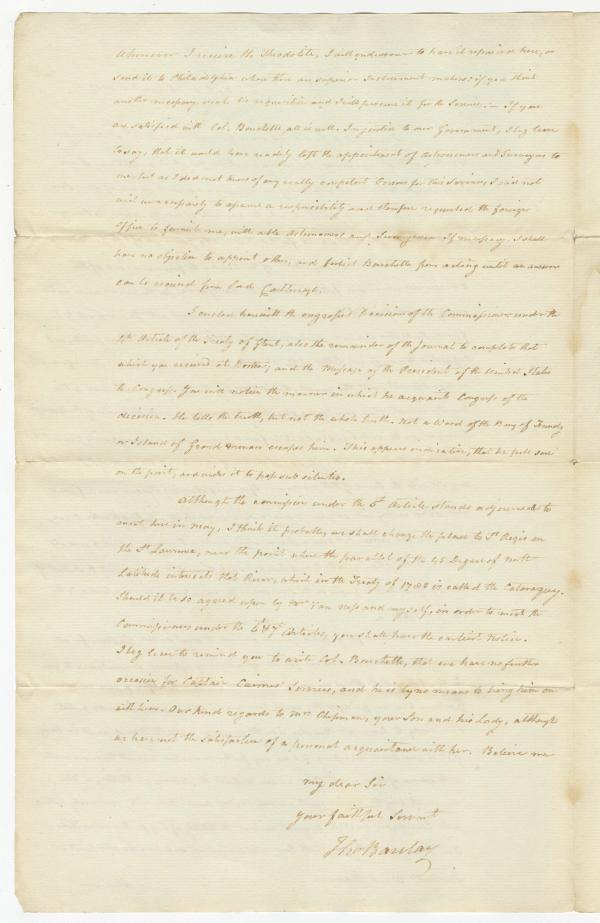 Whenever I receive the Theodolite, I will endeavour to have it repaired here, or
send it to Philadelphia where there are superior Instrument makers: if you think
another necessary, made be requisition and I will procure it for the Service. — If you
are satisfied with Col. Bouchette, all is well. In justice to our Government, I beg leave
to say, that it would have readily left the appointment of Astronomers and Surveyors to
me, but as I did not know of any really competent Persons for this Service, I did not
wish unnecessarily to assume a responsibility and therefore requested the Foreign
Office to furnish me, with able Astronomers and Surveyors. If necessary, I shall
have no objection to appoint others, and forbid Bouchette from acting until an answer
can be received from Lord Castlereagh.
I enclose herewith the engrossed Decision of the Commissioners under the
4th Article of the Treaty of Ghent, also the remainder of the Journal to complete that
which you received at Boston, and the Message of the President of the United States
to Congress. You will notice the manner in which he acquaints Congress of the
decision. He tells the truth, but not the whole truth. Not a Word of the Bay of Fundy
or Island of Grand Menan escapes him. This appears indicative, that he feels sore
on the point, and wishes it to pass sub silentio.
Although the commission under the 5th Article stands adjourned to
meet here in May, I think it probable, we shall change the place to St Regis on
the St Lawrence, near the point where the parallel of the 45 Degree of north
Latitude intersects that River, which in the Treaty of 1783 is called the Cataraquy.
Should it be so agreed upon by Mr Van Ness and myself, in order to meet the
Commissioners under the 6th & 7th Articles, you shall have the earliest Notice.
I beg leave to remind you to write Col. Bouchette, that we have no further
occasion for Captain Cairnes' Services, and he is by no means to bring him on
with him. Our kind regards to Mrs Chipman, your Son and his Lady, although
we have not the satisfaction of a personal acquaintance with her. Believe me
my dear Sir
your faithful Servant
Tho Barclay